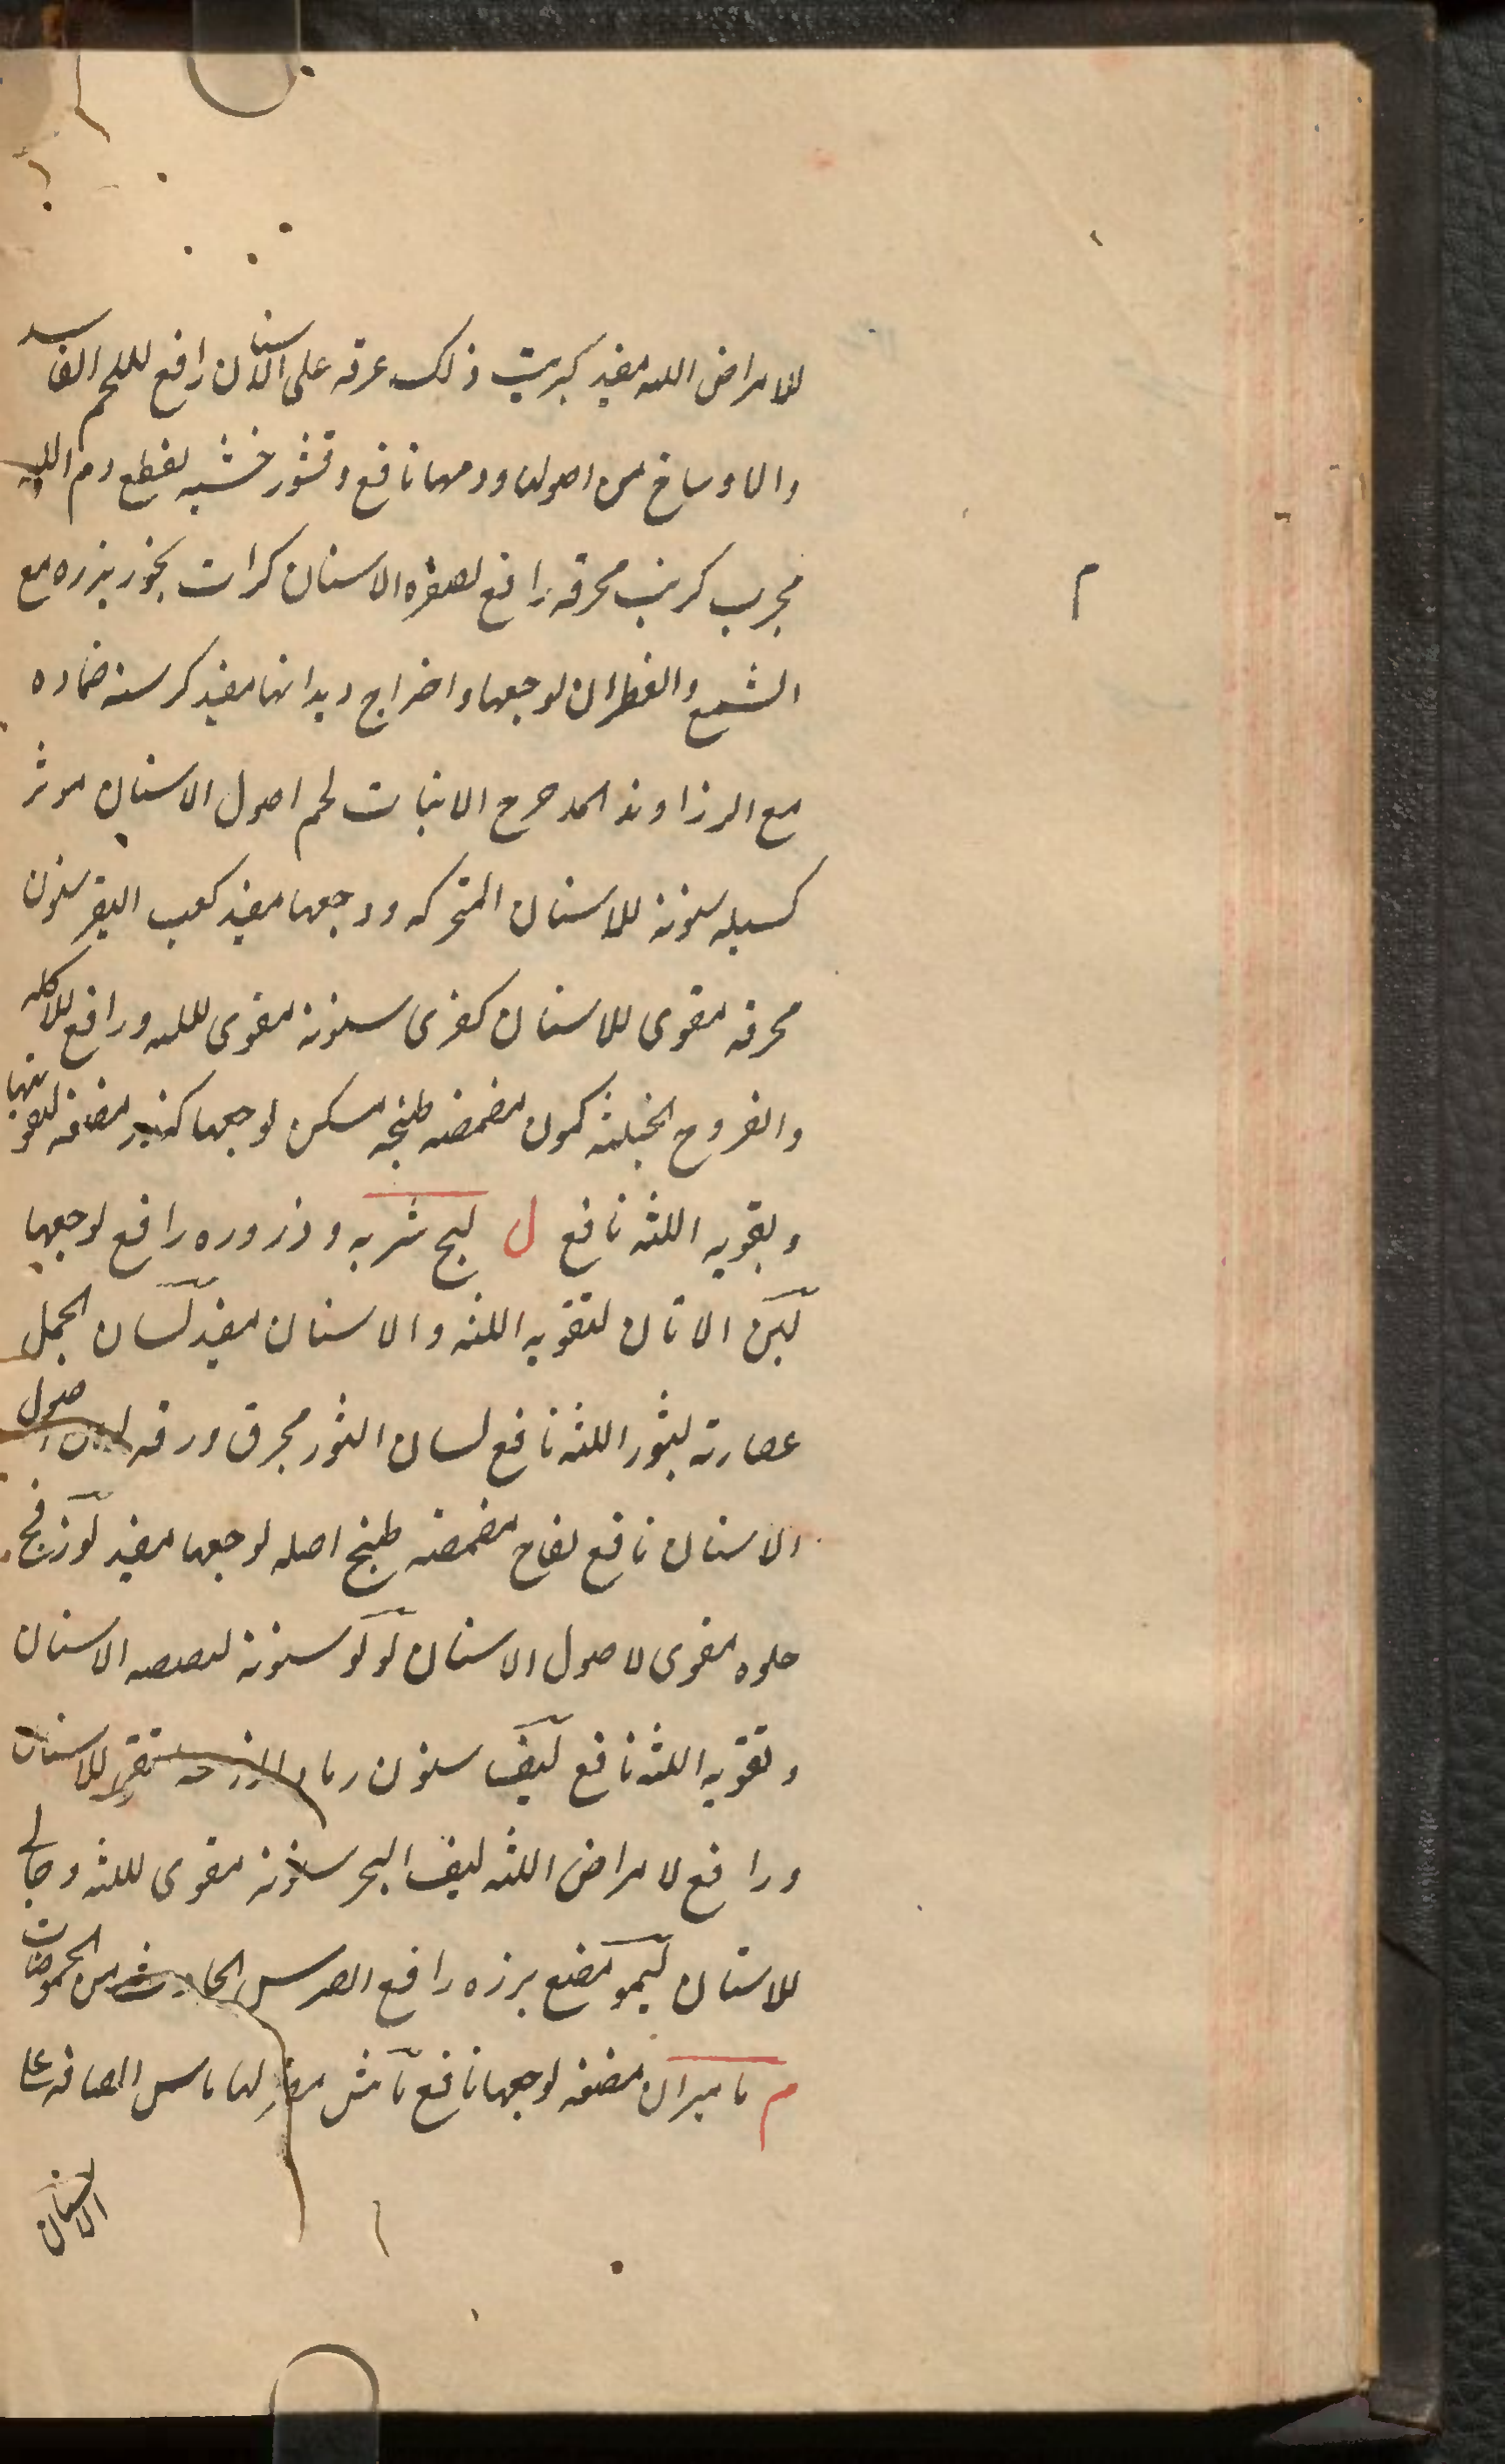 لامراض اللثه مفيد كبريت ذلك عرقه على الاسنان رافع للحم الفاسد
والاوساخ من اصولها ودمها نافع وقشور خشبه لقطع دم اللثه
مجرب كرنب محرقه رافع لصفره الاسنان كراث بخور بزره مع
الشمع والقطران لوجعها واخراج ديدانها مفيد كرسنه ضماده
مع الرزاوند المدحرج الانبات لحم اصول الاسنان موثر
كسيله سنونه للاسنان المتحركه ووجعها مفيد كعب البقر سنون
محرقه مقوى للاسنان كفرى سنونه مقوى للثه ورافع للاكله
والقروح الخبيثه كمون مضمضه طبخه مسكن لوجعها كندر مضغه لتقويتها
وتقويه اللثه نافع ل لبخ شربه وذروره رافع لوجعها
لبن الاتان لتقويه اللثه والاسنان مفيد لسان الحمل
عصارته لبثور اللثه نافع لسان الثور محرق ورقه اصول
الاسنان نافع لفاح مضمضه طبخ اصله لوجعها مفيد لوز
حلوه مقوى لاصول الاسنان لولو سنونه الاسنان
وتقويه اللثه نافع ليف سنون رماد للاسنان
ورافع لامراض اللثه ليف البحر سنونه مقوى للثه وجالى
للاسنان ليمو مضغ بزره رافع الضرس الحادث من الحموضات
م ماميران مضغه لوجعها نافع ماش مضر لها
الاسنان
م